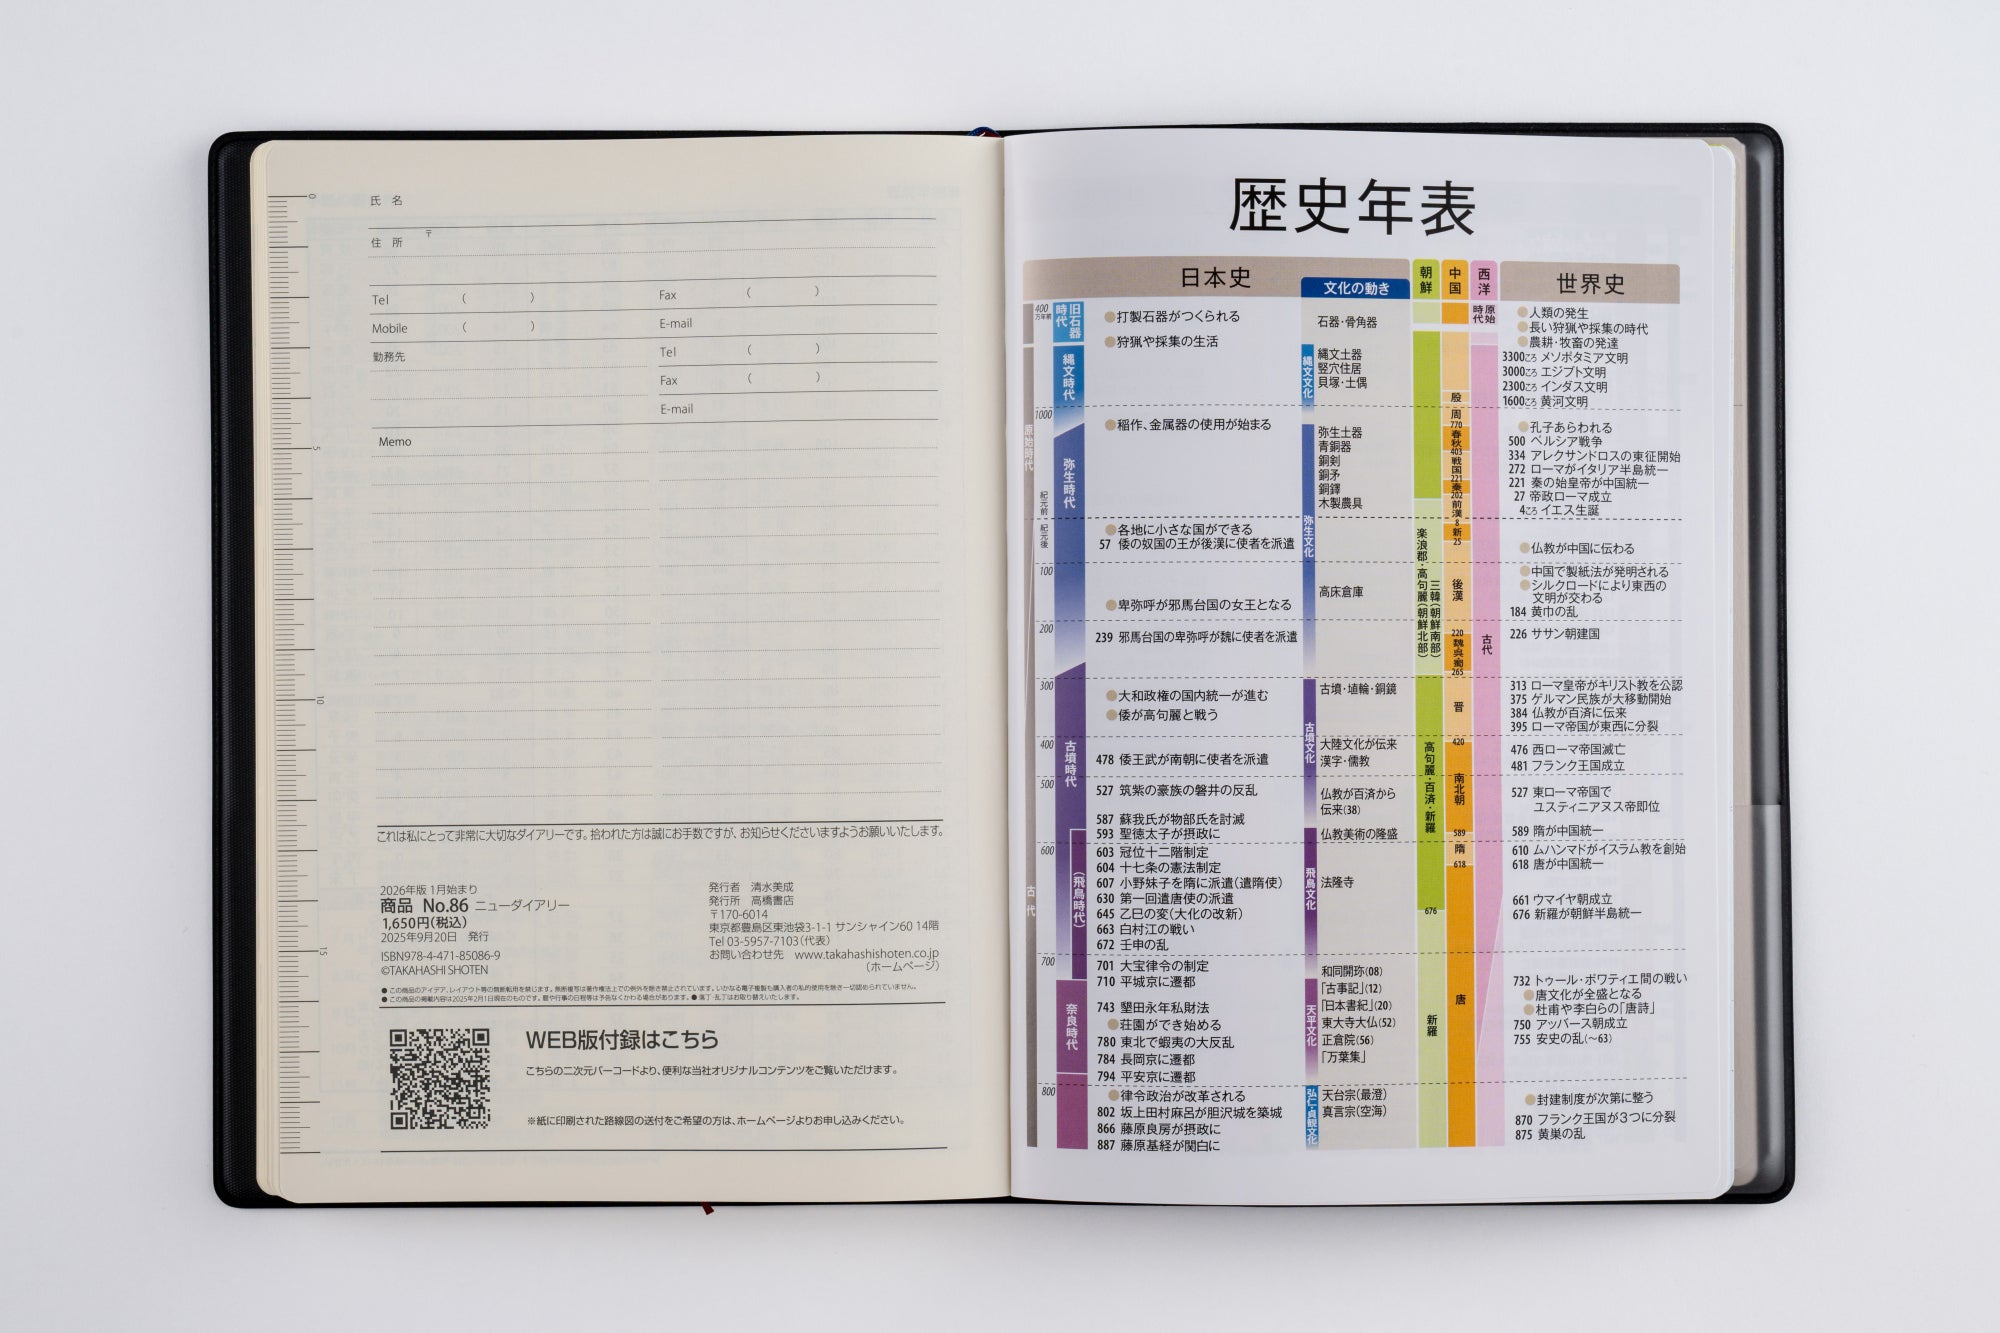 氏 名
住 所 〒
Tel ( )
Fax ( )
Mobile ( )
E-mail
勤務先
Tel ( )
Fax ( )
E-mail
Memo
0
5
10
15
これは私にとって非常に大切なダイアリーです。拾われた方は誠にお手数ですが、お知らせくださいますようお願いいたします。
2026年版 1月始まり
商品 No.86 ニューダイアリー
1,650円(税込)
2025年9月20日 発行
ISBN978-4-471-85086-9
©TAKAHASHI SHOTEN
発行者 清水美成
発行所 高橋書店
〒170-6014
東京都豊島区東池袋3-1-1 サンシャイン60 14階
Tel 03-5957-7103(代表)
お問い合わせ先 www.takahashishoten.co.jp
(ホームページ)
●この商品のアイデア、レイアウト等の無断転用を禁じます。無断複写は著作権法上での例外を除き禁止されています。いかなる電子複製も購入者の私的使用を除き一切認められていません。
●この商品の掲載内容は2025年2月1日現在のものです。暦や行事の日程等は予告なくかわる場合があります。●落丁・乱丁はお取り替えいたします。
WEB版付録はこちら
こちらの二次元バーコードより、便利な当社オリジナルコンテンツをご覧いただけます。
※紙に印刷された路線図の送付をご希望の方は、ホームページよりお申し込みください。
歴史年表
日本史
文化の動き
朝鮮
中国
西洋
世界史
400万年前
1000
紀元前
紀元後
100
200
300
400
500
600
700
800
原始時代
古代
旧石器時代
縄文時代
弥生時代
古墳時代
(飛鳥時代)
奈良時代
●打製石器がつくられる
●狩猟や採集の生活
●稲作、金属器の使用が始まる
●各地に小さな国ができる
57 倭の奴国の王が後漢に使者を派遣
●卑弥呼が邪馬台国の女王となる
239 邪馬台国の卑弥呼が魏に使者を派遣
●大和政権の国内統一が進む
●倭が高句麗と戦う
478 倭王武が南朝に使者を派遣
527 筑紫の豪族の磐井の反乱
587 蘇我氏が物部氏を討滅
593 聖徳太子が摂政に
603 冠位十二階制定
604 十七条の憲法制定
607 小野妹子を隋に派遣(遣隋使)
630 第一回遣唐使の派遣
645 乙巳の変(大化の改新)
663 白村江の戦い
672 壬申の乱
701 大宝律令の制定
710 平城京に遷都
743 墾田永年私財法
●荘園ができ始める
780 東北で蝦夷の大反乱
784 長岡京に遷都
794 平安京に遷都
●律令政治が改革される
802 坂上田村麻呂が胆沢城を築城
866 藤原良房が摂政に
887 藤原基経が関白に
縄文文化
弥生文化
古墳文化
飛鳥文化
天平文化
弘仁・貞観文化
石器・骨角器
縄文土器
竪穴住居
貝塚・土偶
弥生土器
青銅器
銅剣
銅矛
銅鐸
木製農具
高床倉庫
古墳・埴輪・銅鏡
大陸文化が伝来
漢字・儒教
仏教が百済から
伝来(38)
仏教美術の隆盛
法隆寺
和同開珎(08)
「古事記」(12)
「日本書紀」(20)
東大寺大仏(52)
正倉院(56)
「万葉集」
天台宗(最澄)
真言宗(空海)
楽浪郡・高句麗(朝鮮北部)
三韓(朝鮮南部)
高句麗・百済・新羅
676
新羅
殷
周
770
春秋
403
戦国
221
秦
202
前漢
8
新
25
後漢
220
魏呉蜀
265
晋
420
南北朝
589
隋
618
唐
原始時代
古代
●人類の発生
●長い狩猟や採集の時代
●農耕・牧畜の発達
3300ころ メソポタミア文明
3000ころ エジプト文明
2300ころ インダス文明
1600ころ 黄河文明
●孔子あらわれる
500 ペルシア戦争
334 アレクサンドロスの東征開始
272 ローマがイタリア半島統一
221 秦の始皇帝が中国統一
27 帝政ローマ成立
4ころ イエス生誕
●仏教が中国に伝わる
●中国で製紙法が発明される
●シルクロードにより東西の
文明が交わる
184 黄巾の乱
226 ササン朝建国
313 ローマ皇帝がキリスト教を公認
375 ゲルマン民族が大移動開始
384 仏教が百済に伝来
395 ローマ帝国が東西に分裂
476 西ローマ帝国滅亡
481 フランク王国成立
527 東ローマ帝国で
ユスティニアヌス帝即位
589 隋が中国統一
610 ムハンマドがイスラム教を創始
618 唐が中国統一
661 ウマイヤ朝成立
676 新羅が朝鮮半島統一
732 トゥール・ポワティエ間の戦い
●唐文化が全盛となる
●杜甫や李白らの「唐詩」
750 アッバース朝成立
755 安史の乱(〜63)
●封建制度が次第に整う
870 フランク王国が3つに分裂
875 黄巣の乱